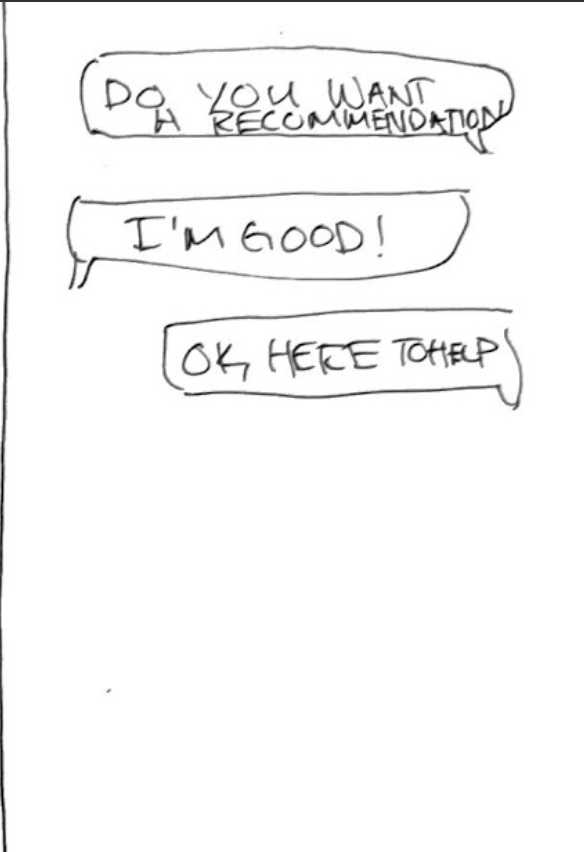 DO YOU WANT
A RECOMMENDATION
I'M GOOD!
OK, HERE TO HELP